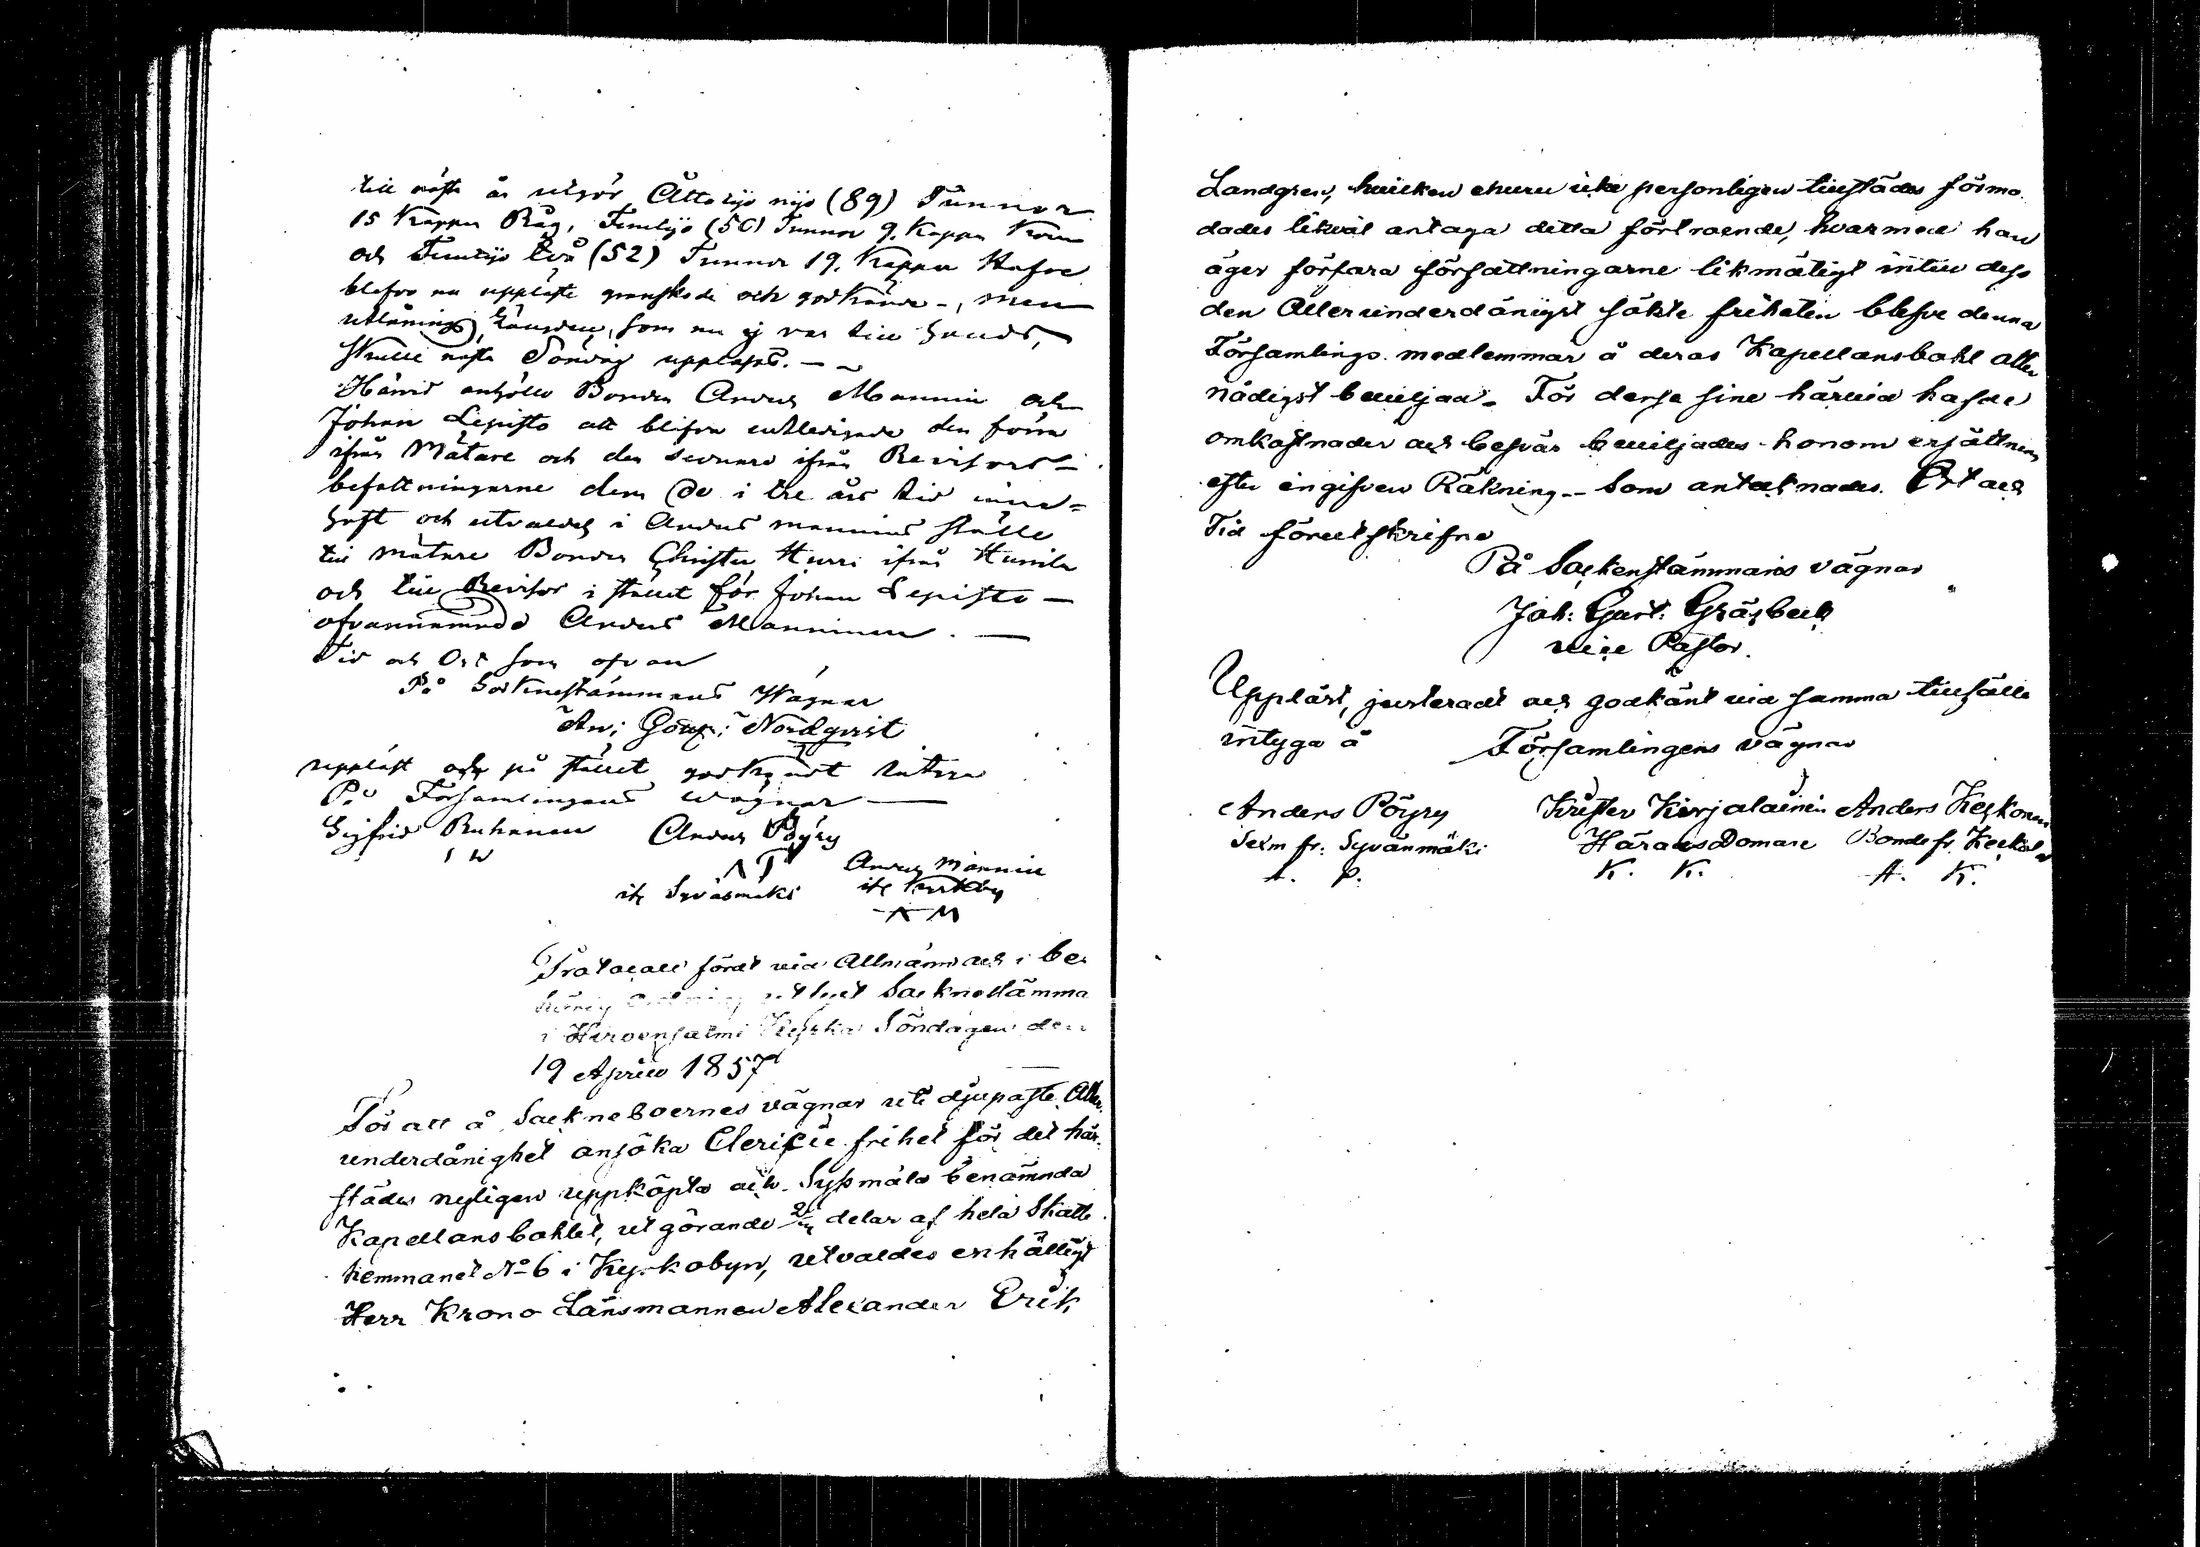 till näste år utgör Åttatijo nijo (89) Tunnor
15 Kappar Råg, Femtijo (50) Tunnor 9. Kappar Korn
och Femtijo två (52) Tunnor 19. Kappar Hafre
blefvo nu uppläste granskade och godkände -, men
utlånings Längden, som nu ej var till hands,
skulle nästa Söndag uppläsas. -
Härvid anhöllo Bonden Anders Mannin och
Johan Lepistö att blifva entledigade den förra
ifrån Mätare och den sednare ifrån Revisors-
befattningarne dem de i tre års tid inne-
haft och utvaldes i Anders Mannins ställe
till mätare Bonden Christer Hurri ifrån Hurrila
och till Revisor i stället för Johan Lepistö -
ofvannämnde Anders Manninen. -
Tid och Ort som ofvan
På Sockenstämmans Wägnar
An: Gour: Nordqvist
uppläst och på stället godkändt intyga
På Församlingens wägnar -
Sigfrid Ruhanen Anders Pöyry
ifr Syväsmäki Anders Mannin
ifr Kyrkoby
A M
Protocoll fördt vid Allmänn och i be
hörig ordning utlyst Socknestämma
i Hirvensalmi Kyrka Söndagen den
19 April 1857
För att å Socknеboernes vägnar uti djupaste Aller
underdånighet ansöka Clericie frihet för det här
städes nyligen uppköpta och Syßmälä benämnda
Kapellansbohlet, utgörande delar af hela Skatte
hemmanet No 6 i Kyrkobyn, utvaldes enhälligt
Herr Krono Länsmannen Alexander Erik
Landgren, hvilken ehuru icke personligen tillstädes förmo
dades likväl antaga detta förtroende, hvarmed han
äger förfara författningarne likmätigt intill dess
den Allerunderdånigst sökte friheten blefve denna
Församlings medlemmar å deras Kapellansbohl aller
nådigst beviljad. För desse sine härvid hafde
omkostnader och besvär beviljades honom ersättning
efter ingifven Räkning -- Som antecknades. Ort och
Tid förutskrifne
På Sockenstämmans vägnar
Joh: Gust: Gråsbeck
vice Pastor.
Uppläst, justeradt och godkänt vid samma tillfälle
intyga å Församlingens vägnar
Anders Pöyry Krister Kirjalainen Anders Keskonen
Sexm fr: Syvänmäki Härads Domare Bonde fr. Keskola
A. P. K. K. A. K.